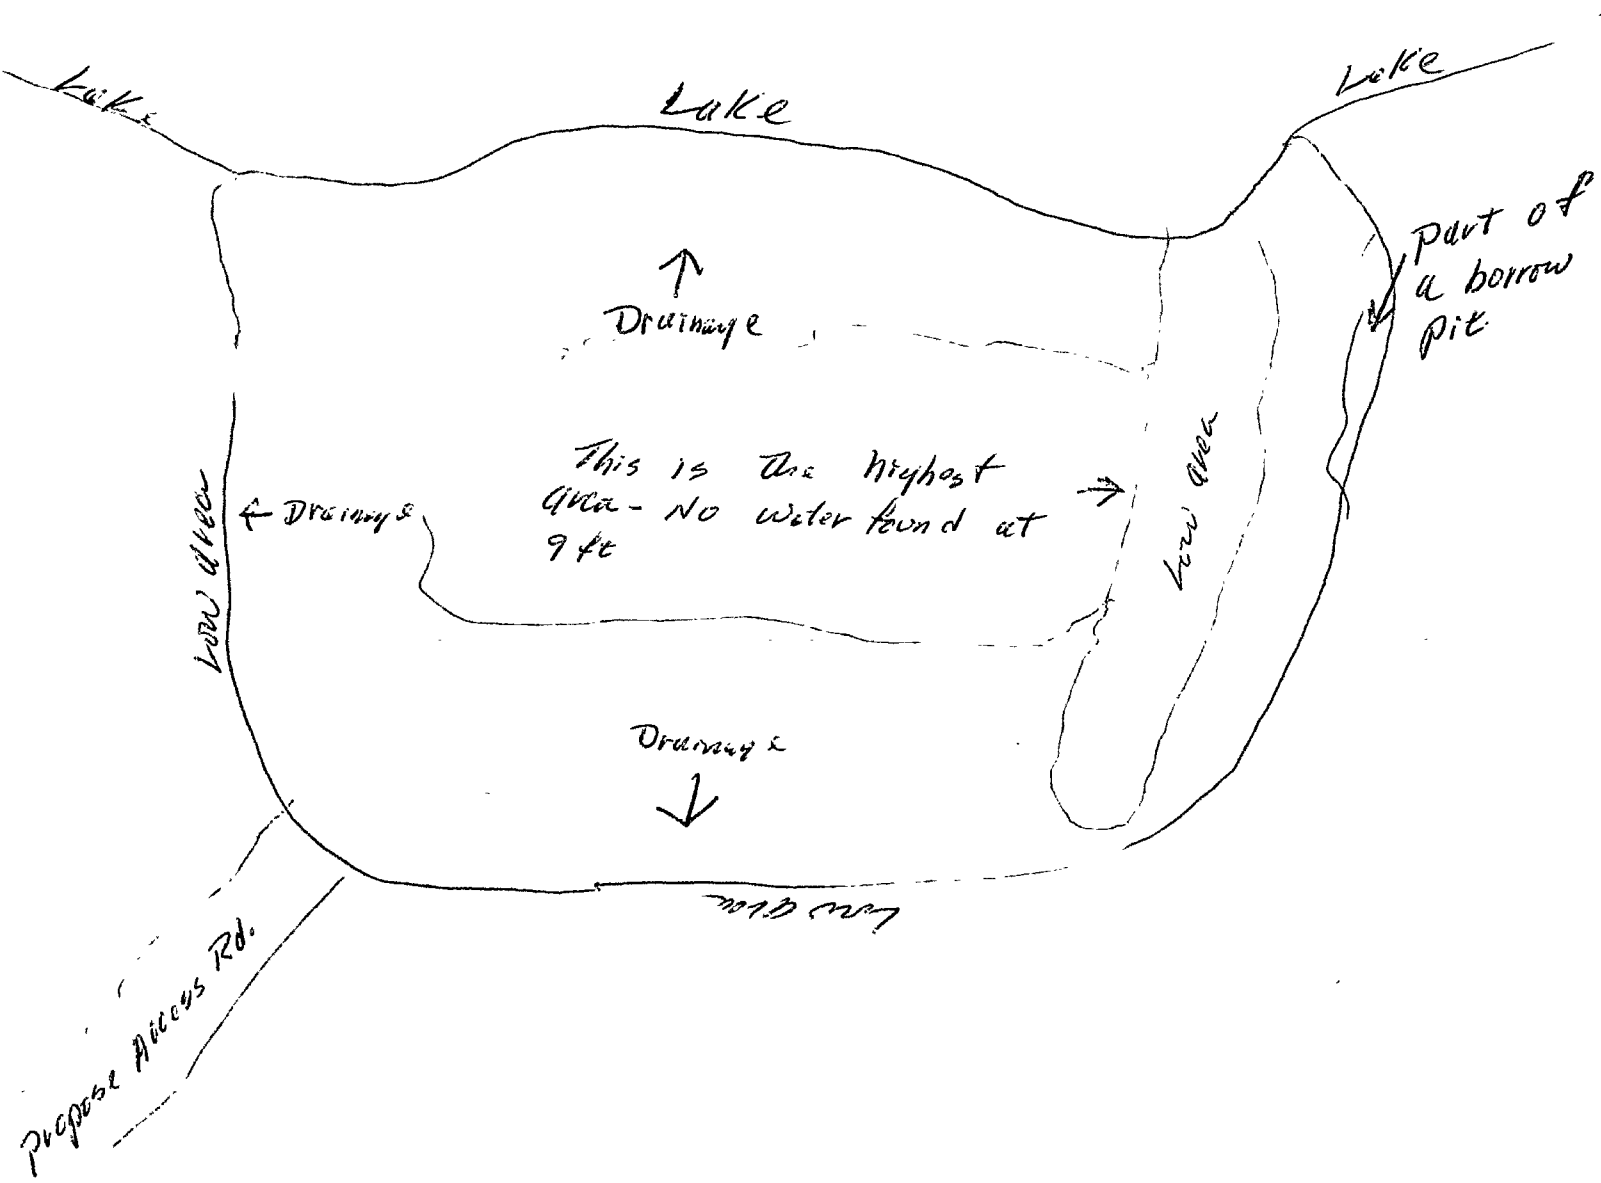 Lake
Lake
Lake
Part of
a borrow
pit
Drainage
This is the highest
area - No water found at
9 ft
Drainage
Low area
Low area
Drainage
Low area
Propose Access Rd.